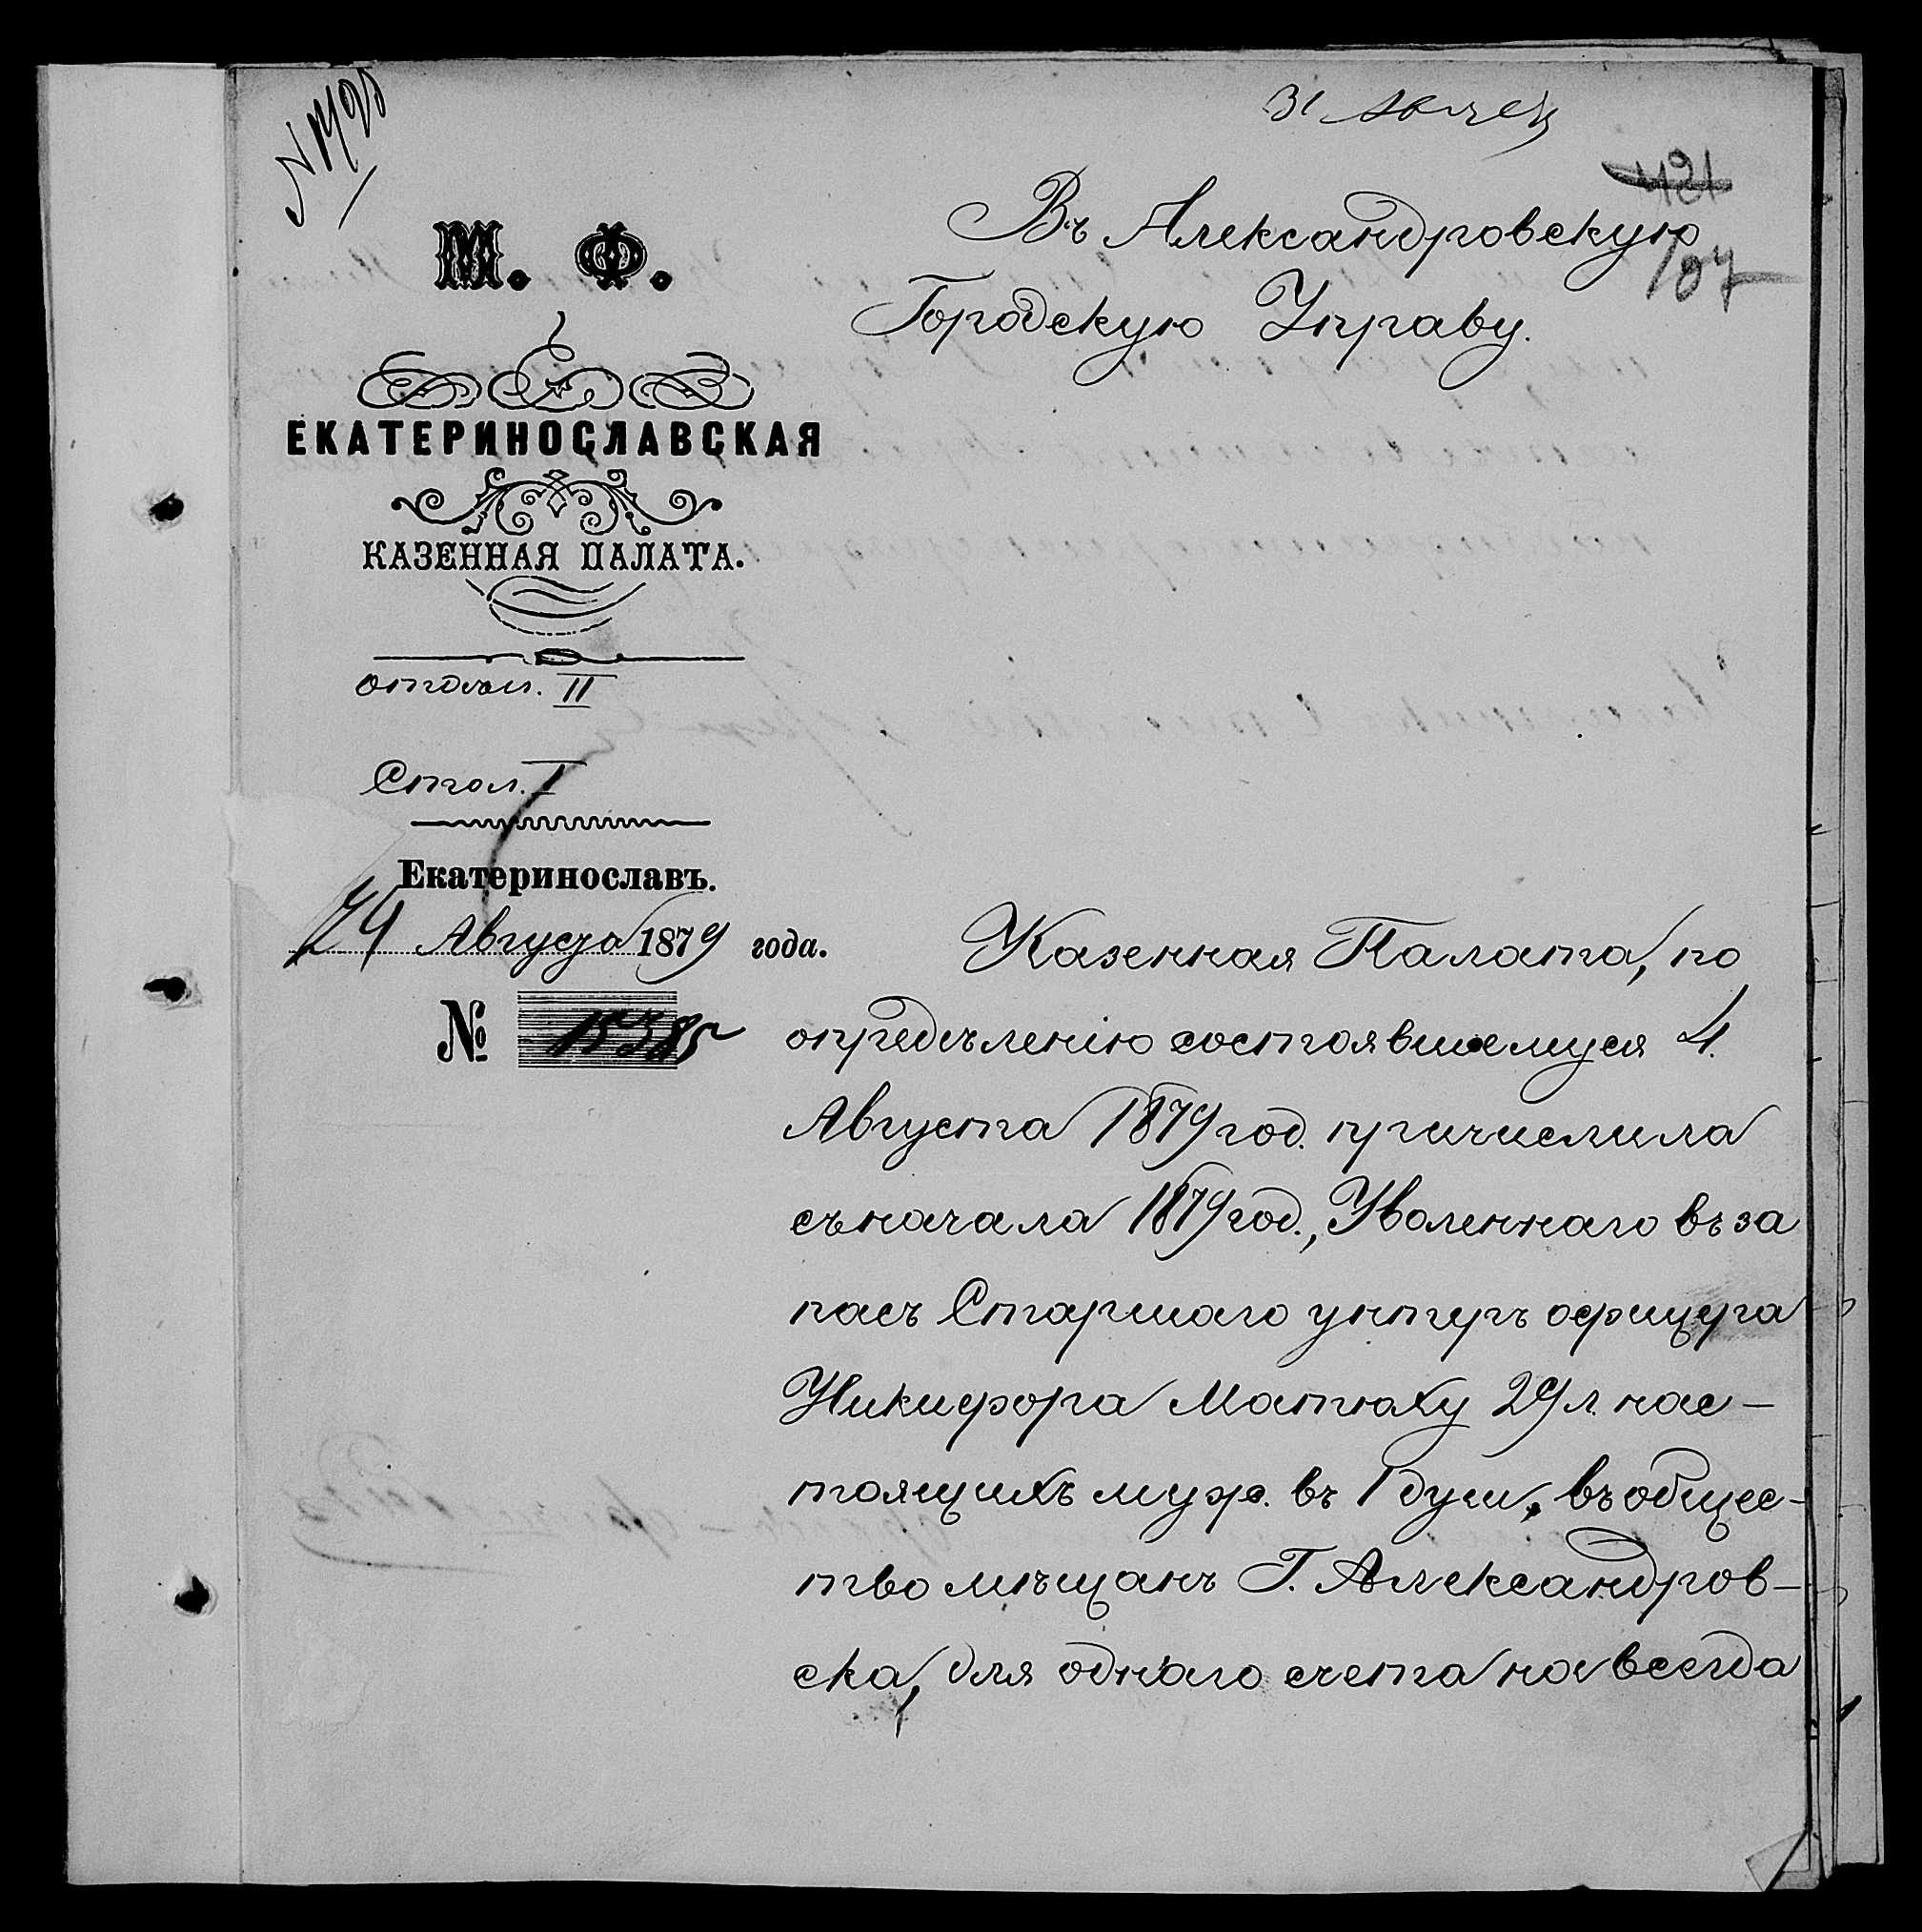 31 Август
421
107
М. Ф.
ЕКАТЕРИНОСЛАВСКАЯ
КАЗЕННАЯ ПАЛАТА.
Отдѣл. II
Стол. I
Екатеринославъ.
24 Августа 1879 года.
№ 15385
Въ Александровскую
Городскую Управу.
Казенная Палата, по
опредѣленію состоявшемуся 4.
Августа 1879 год. причислила
съ начала 1879 год., Уволеннаго въ за
пасъ Старшаго унтеръ офицера
Никифора Матюху 29 л. нас-
тоящихъ муж. въ 1 душ., въ общес-
тво мѣщанъ Г. Александров-
ска, для одного счета на всегда